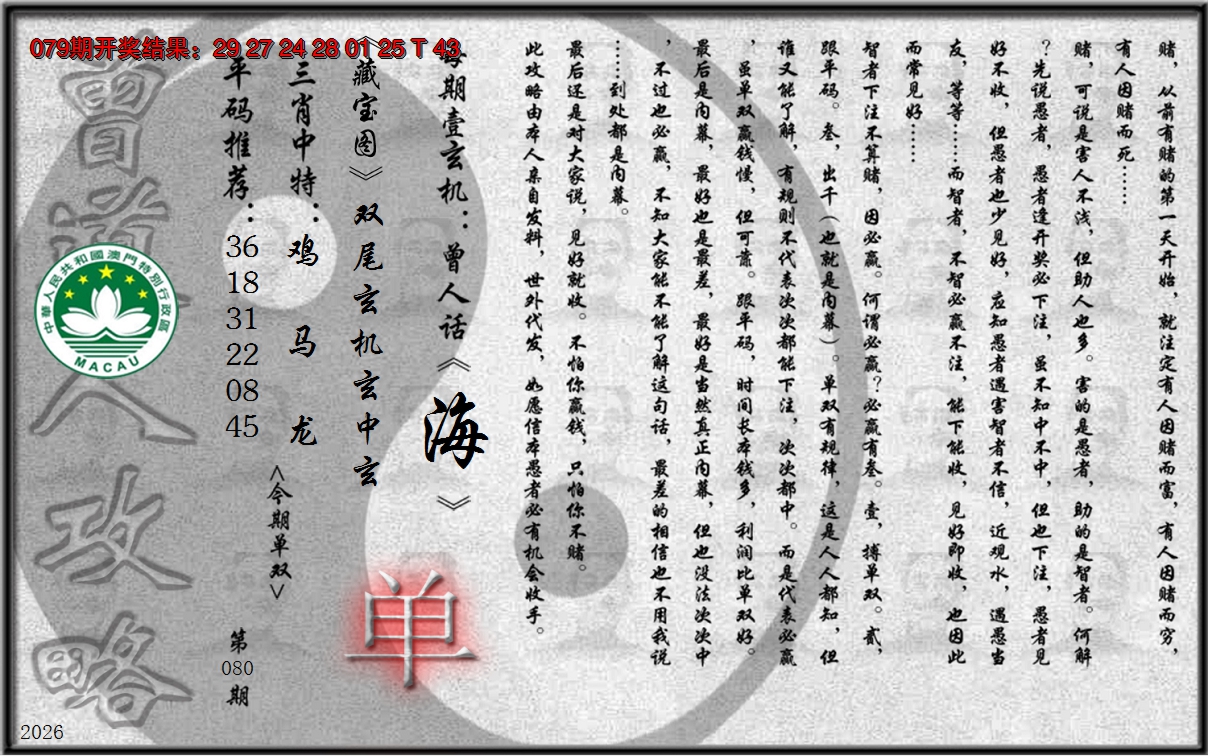 079期开奖结果：29 27 24 28 01 25 T 43
赌，从前有赌的第一天开始，就注定有人因赌而富，有人因赌而穷，
有人因赌而死……
赌，可说是害人不浅，但助人也多。害的是愚者，助的是智者。何解
？先说愚者，愚者逢开奖必下注，虽不知中不中，但也下注，愚者见
好不收，但愚者也少见好，应知愚者遇害智者不信，近观水，遇愚当
友，等等……而智者，不智必赢不注，能下能收，见好即收，也因此
而常见好……
智者下注不算赌，因必赢。何谓必赢？必赢有叁。壹，搏单双。贰，
跟平码。叁，出千（也就是内幕）。单双有规律，这是人人都知，但
谁又能了解，有规则不代表次次都能下注，次次都中。而是代表必赢
，虽单双赢钱慢，但可靠。跟平码，时间长本钱多，利润比单双好。
最后是内幕，最好也是最差，最好是当然真正内幕，但也没法次次中
，不过也必赢，不知大家能不能了解这句话，最差的相信也不用我说
……到处都是内幕。
最后还是对大家说，见好就收。不怕你赢钱，只怕你不赌。
此攻略由本人亲自发料，世外代发，如愿信本愚者必有机会收手。
每期壹玄机：曾人话《海》
《藏宝图》双尾玄机玄中玄
单
三肖中特：鸡 马 龙
<今期单双>
平码推荐：
36
18
31
22
08
45
第
080
期
曾道人攻略
中華人民共和國澳門特別行政區
MACAU
2026